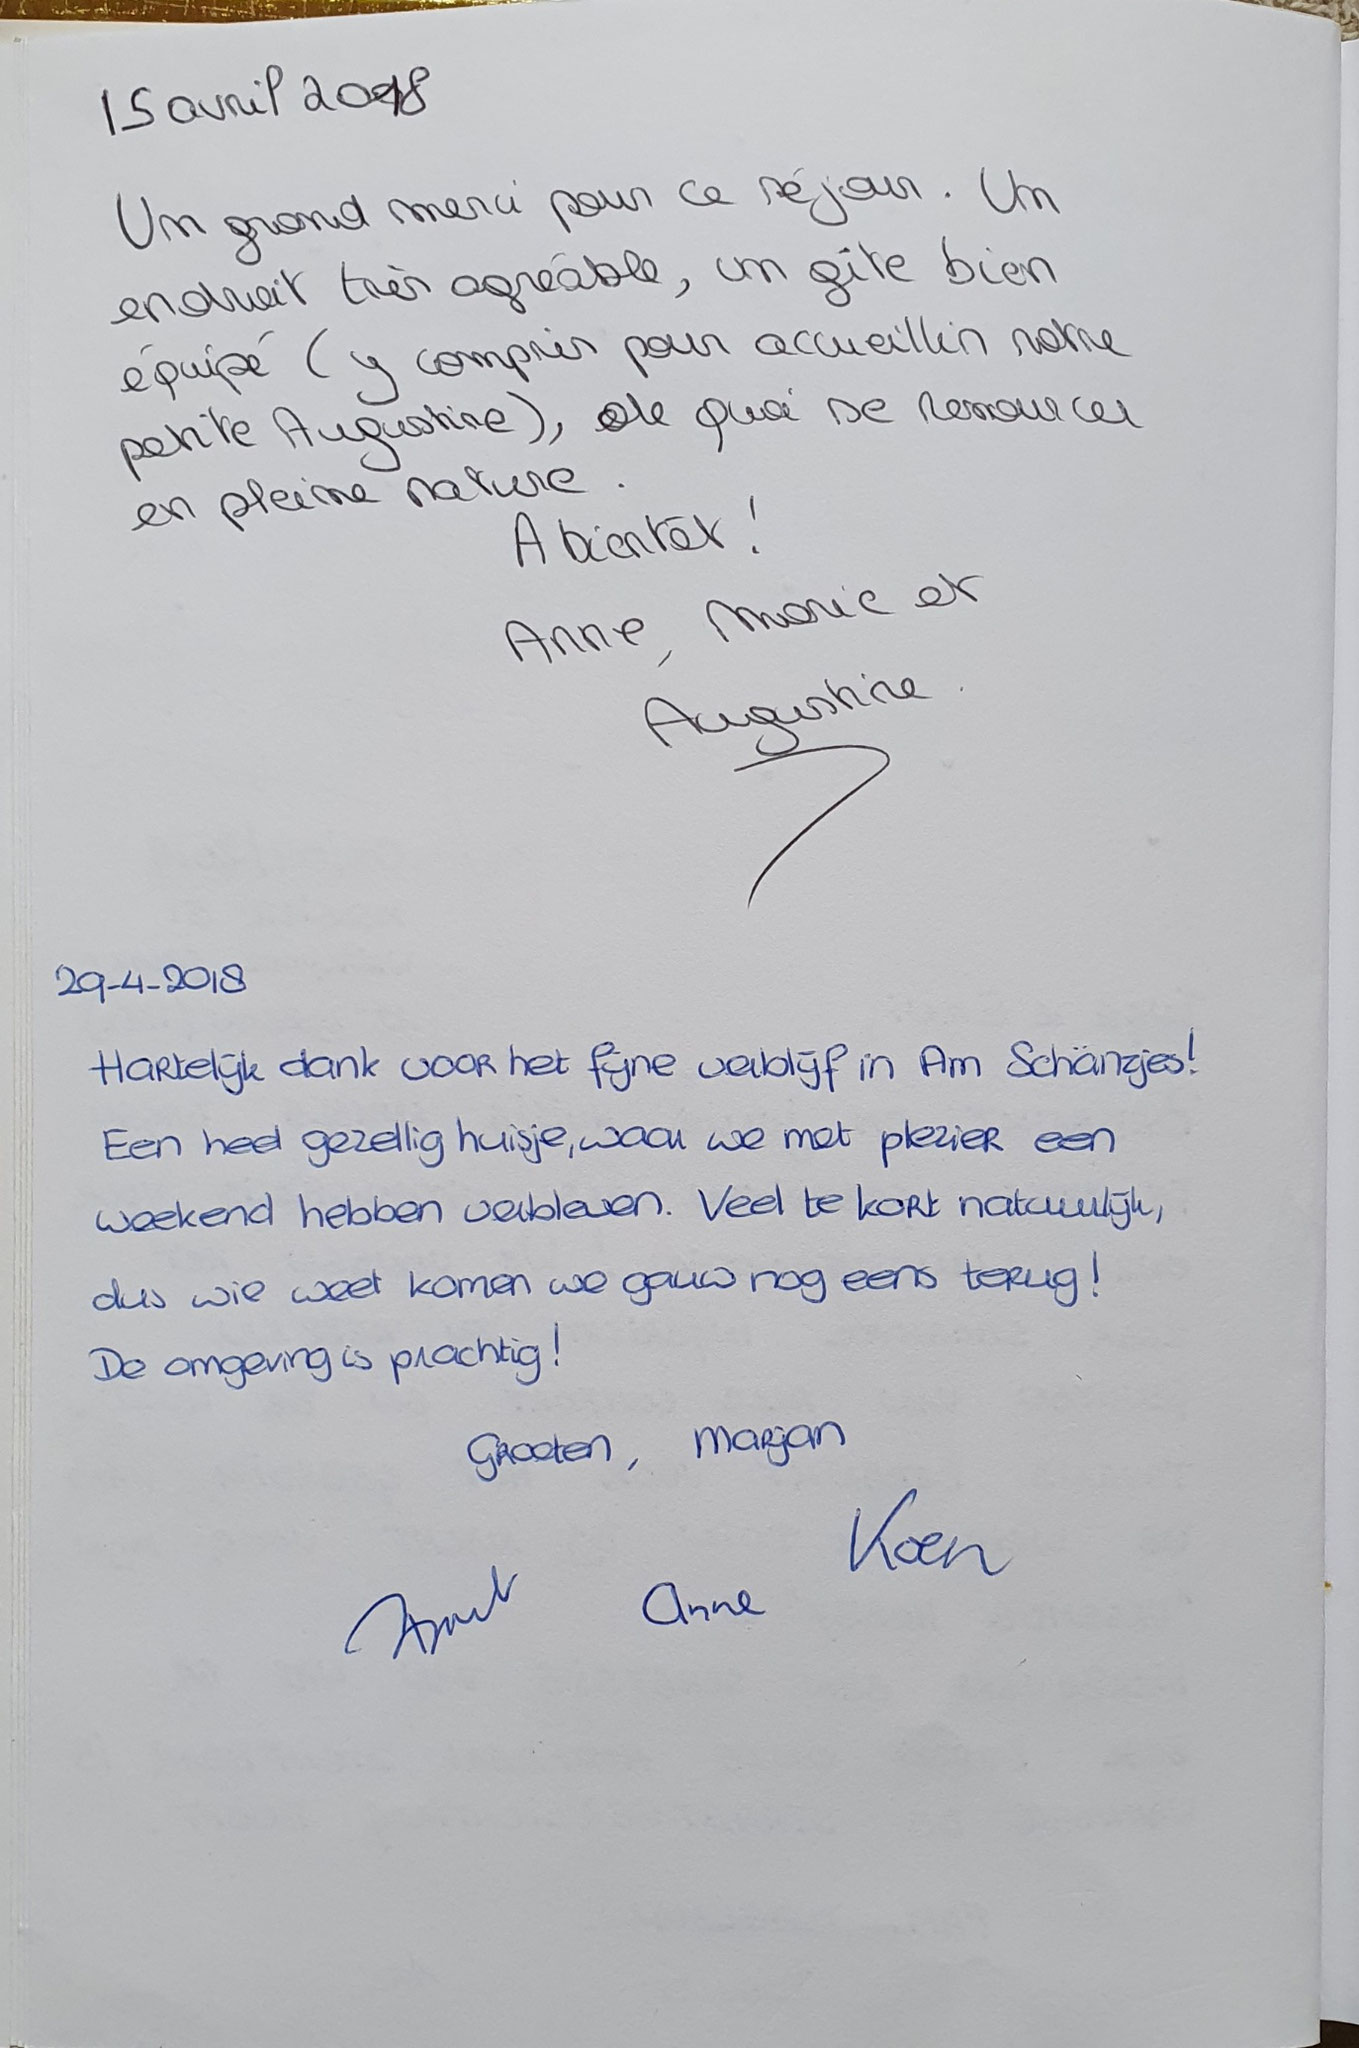 15 avril 2018
Un grand merci pour ce séjour. Un
endroit très agréable, un gîte bien
équipé (y compris pour accueillir notre
petite Augustine), de quoi se ressourcer
en pleine nature.
A bientôt!
Anne, Marie et
Augustine.
29-4-2018
Hartelijk dank voor het fijne verblijf in Am Schänzjes!
Een heel gezellig huisje, waar we met plezier een
weekend hebben verbleven. Veel te kort natuurlijk,
dus wie weet komen we gauw nog eens terug!
De omgeving is prachtig!
Groeten, Marjan
Koen
Anne